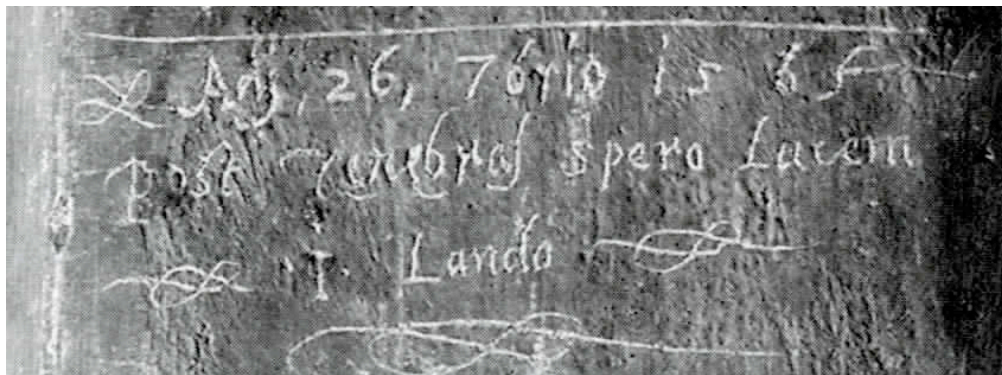 Adj, 26, 7brio 1565
post Tenebras spero Lucem
T. Lando